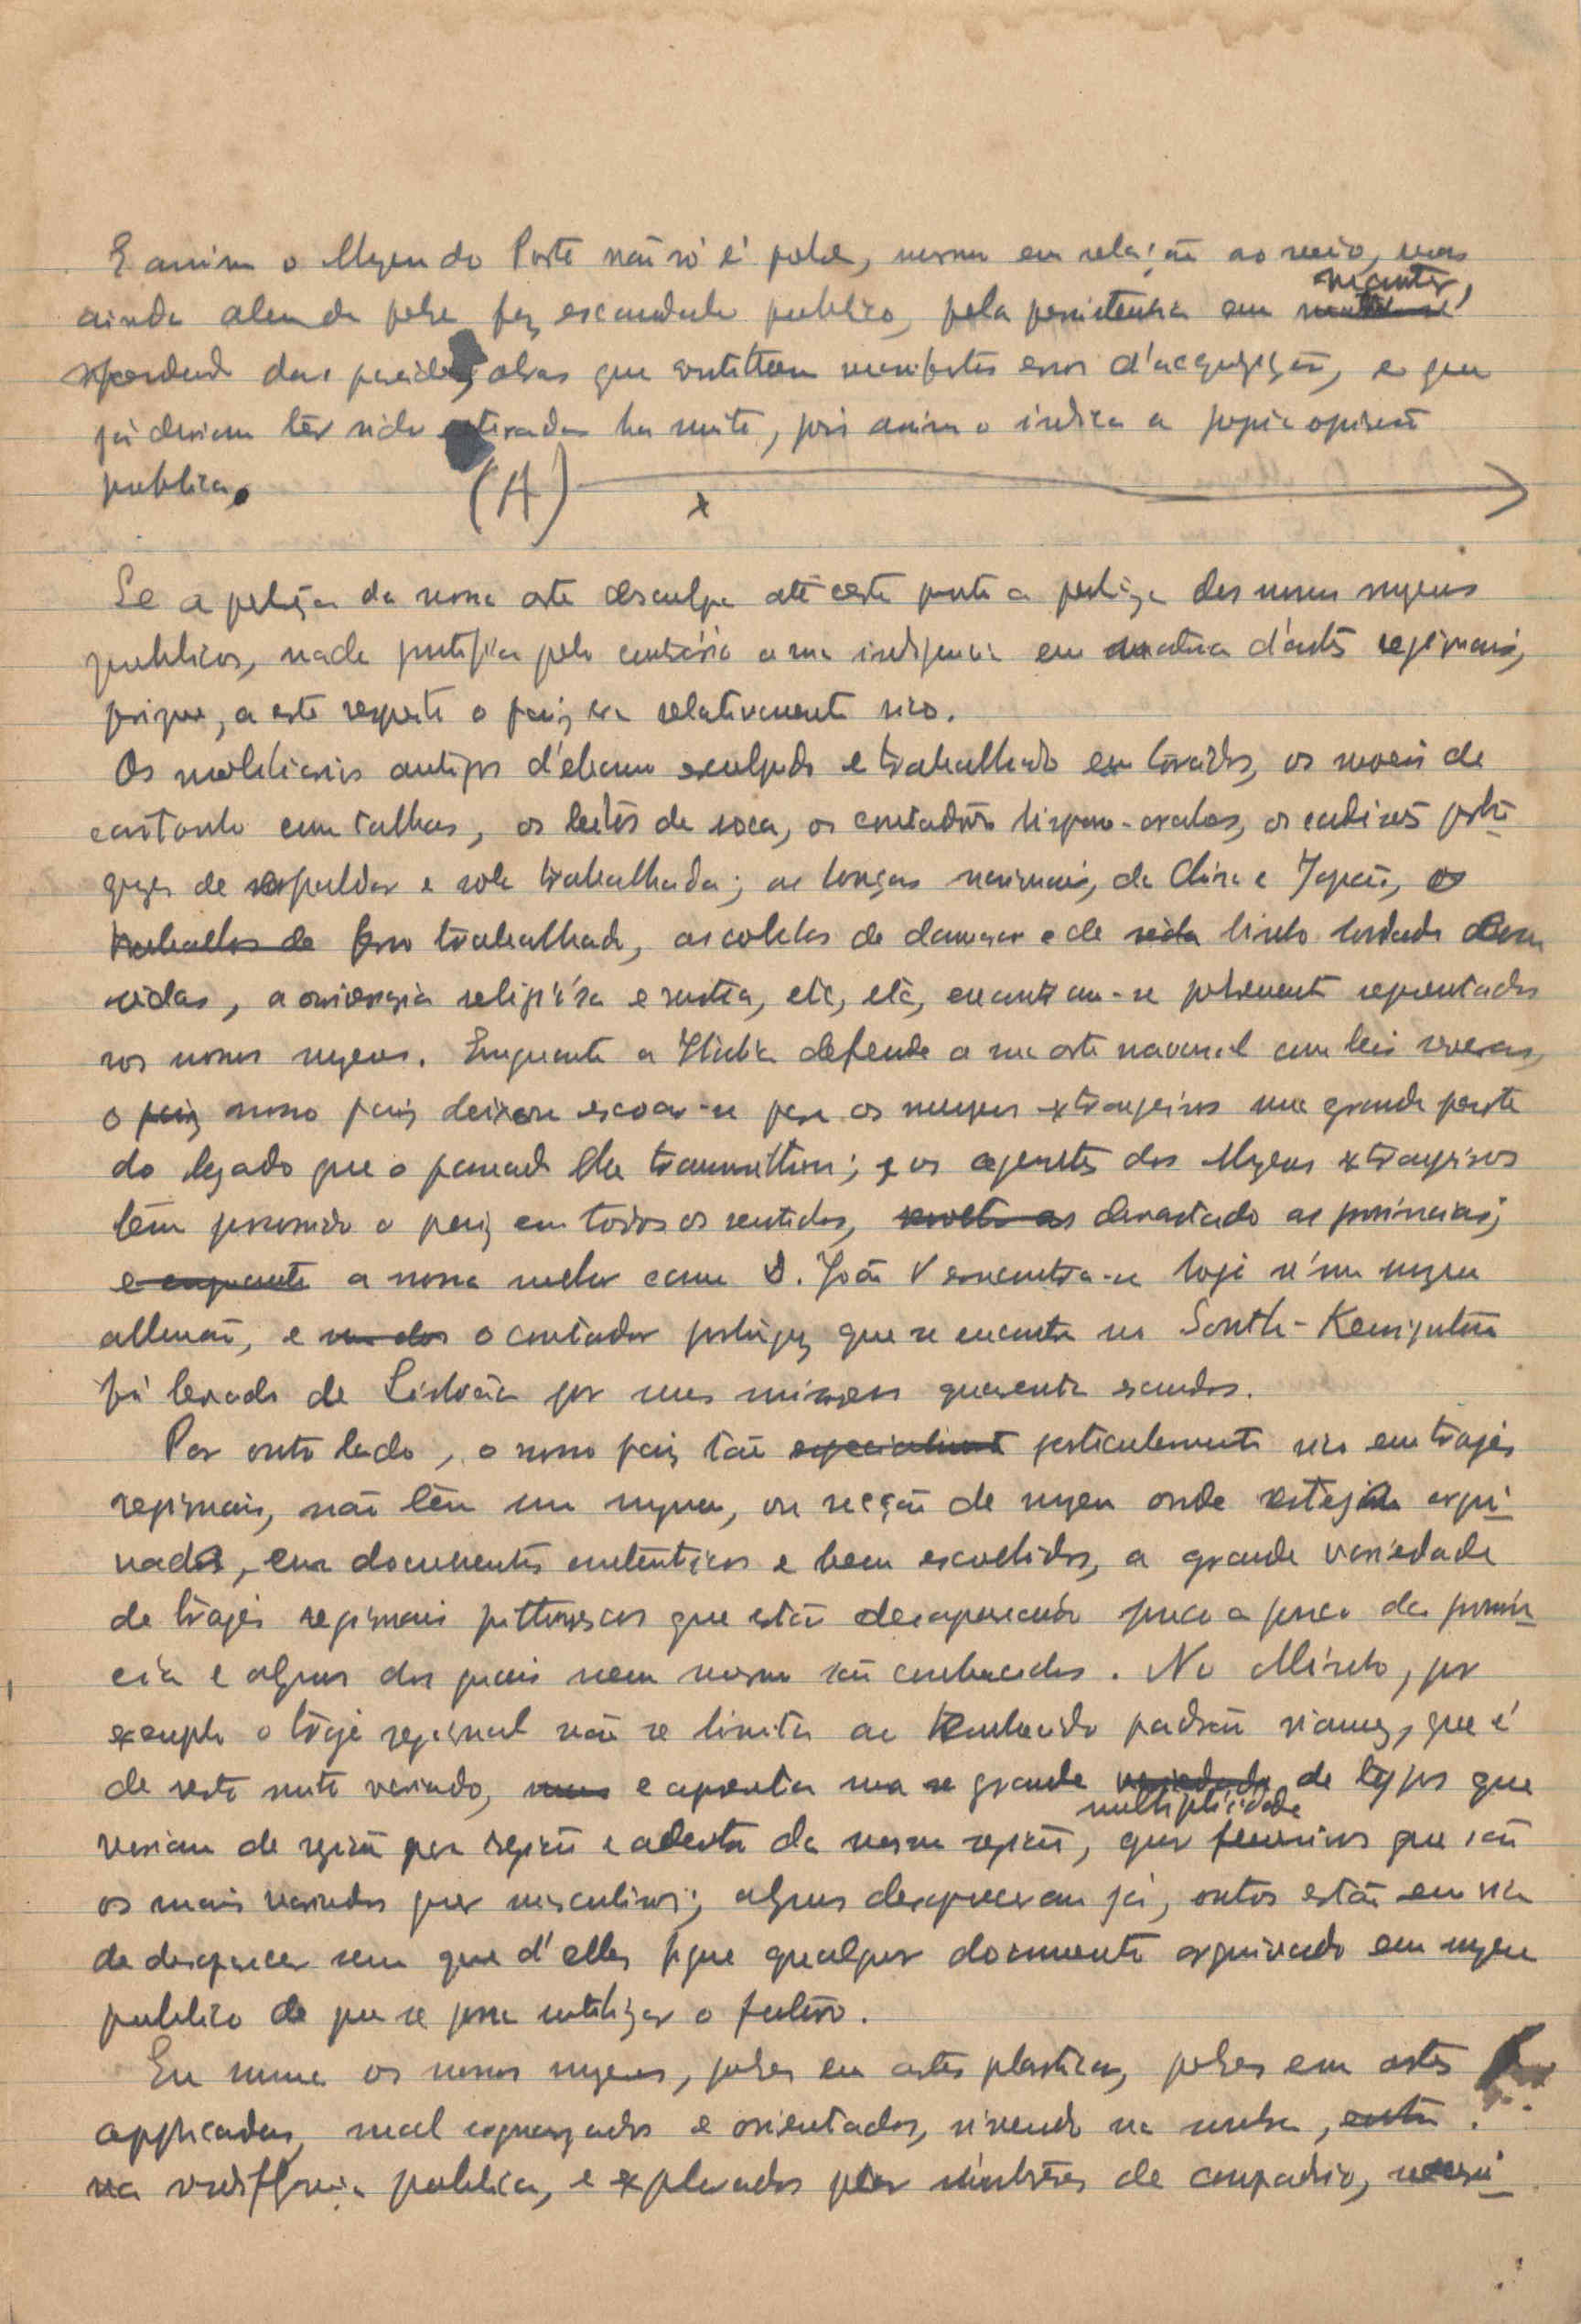 E assim o Muzeu do Porto não só é pobre, mesmo em relação ao meio, mas
ainda alem de pobre faz escandalo publico, pela persistencia em manter,
das paredes, obras que constituem manifestos erros d'acquizição, e que
já deviam têr sido retiradas ha muito, pois assim o indica a propria opinião
publica.
(A) x
Se a pobreza da nossa arte desculpa até certo ponto a pobreza dos nossos muzeus
publicos, nada justifica pelo contrário a sua indigencia em materia d'artes regionais,
porque, a este respeito o paiz era relativamente rico.
Os mobiliarios antigos d'ebano esculpido e trabalhado em torcidos, os moveis de
castanho com talhas, os leitos de roca, os contadores hispano-arabes, os cadeirões portu-
guezes de respaldar e sola trabalhada; as louças nacionais, da China e Japão, os
trabalhos de ferro trabalhado, as colchas de damasco e de seda linho bordado com
sedas, a ourivesaria religiosa e rustica, etc, etc, encontram-se pobremente representados
nos nossos muzeus. Emquanto a Italia defende a sua arte nacional com leis severas,
o paiz nosso paiz deixou escoar-se para os muzeus extrangeiros uma grande parte
do legado que o passado lhe transmittiu; e os agentes dos Muzeus extrangeiros
têm percorrido o paiz em todos os sentidos, devastado as provincias;
e emquanto a nossa melhor cama D. João V encontra-se hoje n'um muzeu
allemão, e um dos o contador portuguez que se encontra no South-Kensington
foi levado de Lisboa por uns miseros quarenta escudos.
Por outro lado, o nosso paiz tão especialmente particularmente rico em trajes
regionais, não têm um muzeu, ou secção de muzeu onde esteja arqui-
vada, em documentos autenticos e bem escolhidos, a grande variedade
de trajes regionais pittorescos que estão desaparecendo pouco a pouco da provin-
cia e alguns dos quais nem mesmo são conhecidos. No Minho, por
exemplo o traje regional não se limita ao conhecido padrão vianez, que é
de resto muito variado, mas e apresenta uma grande variedade de typos que
multiplicidade
variam de região para região e adentro da mesma região, quer femininos que são
os mais variados quer masculinos; alguns desapareceram já, outros estão em via
de desaparecer sem que d'elles fique qualquer documento arquivado em muzeu
publico de que se possa utilizar o futuro.
Em suma os nossos muzeus, pobres em artes plasticas, pobres em artes
applicadas, mal organizados e orientados, vivendo na sombra, entre
na indifferença publica, e explorados por
de compadrio,